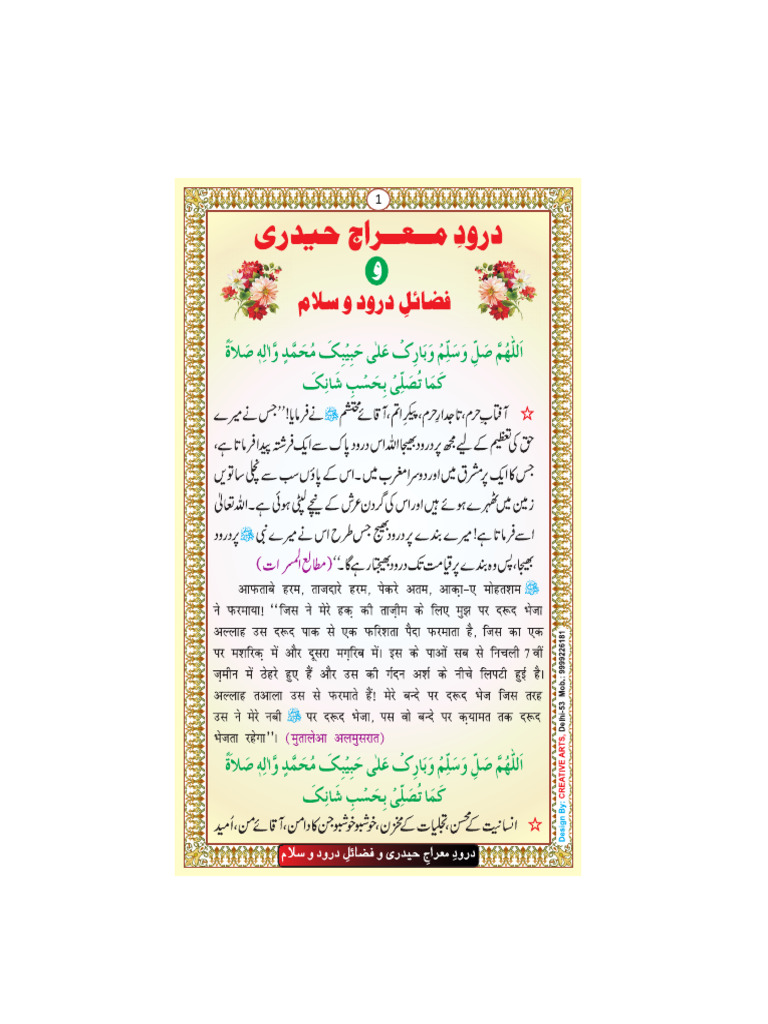 1
درودِ معراج حیدری
و
فضائلِ درود و سلام
اَللّٰهُمَّ صَلِّ وَسَلِّمْ وَبَارِکْ عَلٰی حَبِیْبِکَ مُحَمَّدٍ وَّاٰلِهٖ صَلَاۃً
کَمَا تُصَلِّیْ بِحَسْبِ شَانِکَ
☆ آفتابِ حرم، تاجدارِ حرم، پیکرِ اتم، آقائے محتشم ﷺ نے فرمایا! ’’جس نے میرے
حق کی تعظیم کے لیے مجھ پر درود بھیجا اللہ اس درود پاک سے ایک فرشتہ پیدا فرماتا ہے،
جس کا ایک پر مشرق میں اور دوسرا مغرب میں۔ اس کے پاؤں سب سے نچلی ساتویں
زمین میں ٹھہرے ہوئے ہیں اور اس کی گردن عرش کے نیچے لپٹی ہوئی ہے۔ اللہ تعالیٰ
اسے فرماتا ہے! میرے بندے پر درود بھیج جس طرح اس نے میرے نبی ﷺ پر درود
بھیجا، پس وہ بندے پر قیامت تک درود بھیجتا رہے گا۔‘‘ (مطالع المسرات)
आफताबे हरम, ताजदारे हरम, पेकरे अतम, आक़ा-ए मोहतशम ﷺ
ने फरमाया! ‘‘जिस ने मेरे हक़ की ताज़ीम के लिए मुझ पर दरूद भेजा
अल्लाह उस दरूद पाक से एक फरिशता पैदा फरमाता है, जिस का एक
पर मशरिक़ में और दूसरा मग़रिब में। इस के पाओं सब से निचली 7वीं
ज़मीन में ठेहरे हुए हैं और उस की गंदन अर्श के नीचे लिपटी हुई है।
अल्लाह तआला उस से फरमाते हैं! मेरे बन्दे पर दरूद भेज जिस तरह
उस ने मेरे नबी ﷺ पर दरूद भेजा, पस वो बन्दे पर क़यामत तक दरूद
भेजता रहेगा’’। (मुतालेआ अलमुसरात)
اَللّٰهُمَّ صَلِّ وَسَلِّمْ وَبَارِکْ عَلٰی حَبِیْبِکَ مُحَمَّدٍ وَّاٰلِهٖ صَلَاۃً
کَمَا تُصَلِّیْ بِحَسْبِ شَانِکَ
☆ انسانیت کے محسن، تجلیات کے مخزن، خوشبو خوشبو جن کا دامن، آقائے من، اُمید
درودِ معراجِ حیدری و فضائلِ درود و سلام
Design By: CREATIVE ARTS, Delhi-53 Mob.: 9999226181